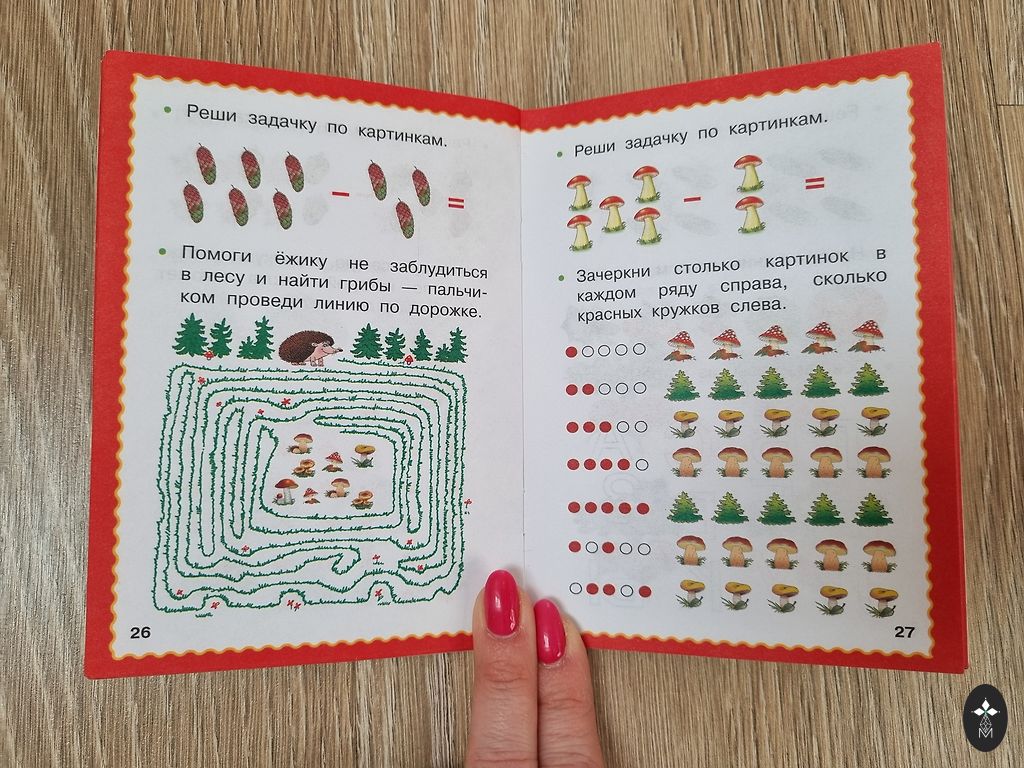 • Реши задачку по картинкам.
− =
• Помоги ёжику не заблудиться
в лесу и найти грибы — пальчи-
ком проведи линию по дорожке.
26
• Реши задачку по картинкам.
− =
• Зачеркни столько картинок в
каждом ряду справа, сколько
красных кружков слева.
27
M